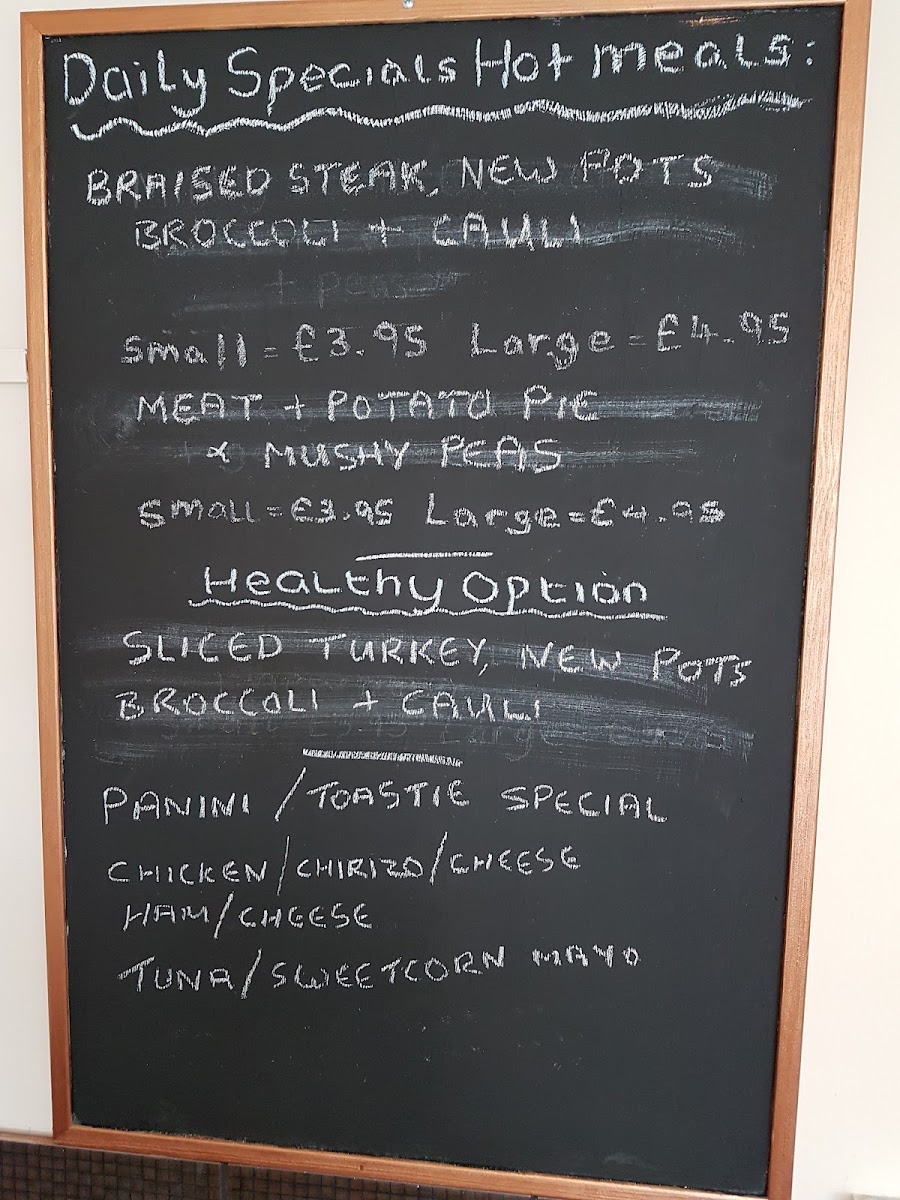 Daily Specials Hot meals:
BRAISED STEAK, NEW POTS
BROCCOLI + CAULI
small = £3.95 Large = £4.95
MEAT + POTATO PIE
& MUSHY PEAS
Small = £3.95 Large = £4.95
Healthy Option
SLICED TURKEY, NEW POTS
BROCCOLI + CAULI
PANINI / TOASTIE SPECIAL
CHICKEN/CHIRIZO/CHEESE
HAM/CHEESE
TUNA/SWEETCORN MAYO